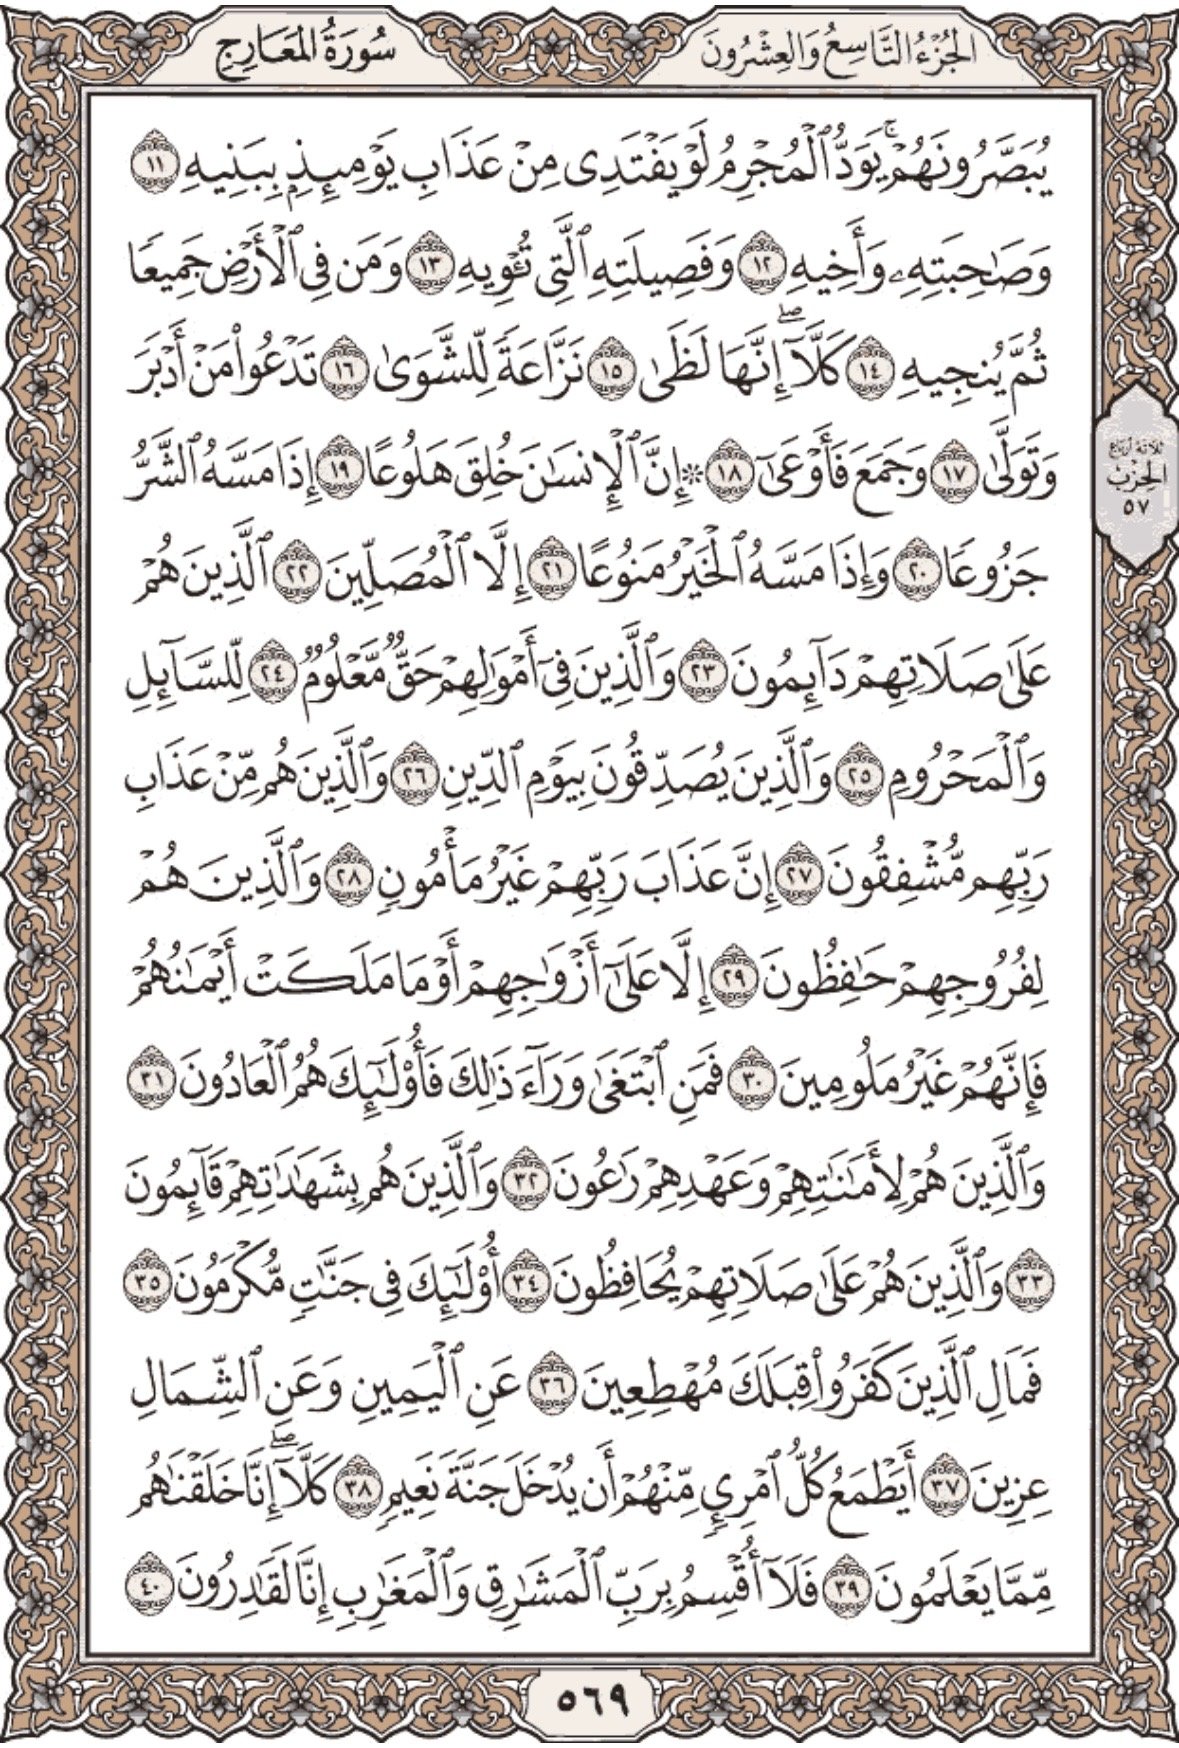 الجُزْءُ التَّاسِعُ وَالعِشْرُونَ
سُورَةُ المَعَارِجِ
يُبَصَّرُونَهُمْۚ يَوَدُّ ٱلْمُجْرِمُ لَوْ يَفْتَدِى مِنْ عَذَابِ يَوْمِئِذِۭ بِبَنِيهِ ١١
وَصَٰحِبَتِهِۦ وَأَخِيهِ ١٢ وَفَصِيلَتِهِ ٱلَّتِى تُـْٔوِيهِ ١٣ وَمَن فِى ٱلْأَرْضِ جَمِيعًا
ثُمَّ يُنجِيهِ ١٤ كَلَّآۖ إِنَّهَا لَظَىٰ ١٥ نَزَّاعَةً لِّلشَّوَىٰ ١٦ تَدْعُوا۟ مَنْ أَدْبَرَ
وَتَوَلَّىٰ ١٧ وَجَمَعَ فَأَوْعَىٰٓ ١٨ ۞ إِنَّ ٱلْإِنسَٰنَ خُلِقَ هَلُوعًا ١٩ إِذَا مَسَّهُ ٱلشَّرُّ
ثلاثة أرباع
الحِزْب
٥٧
جَزُوعًا ٢٠ وَإِذَا مَسَّهُ ٱلْخَيْرُ مَنُوعًا ٢١ إِلَّا ٱلْمُصَلِّينَ ٢٢ ٱلَّذِينَ هُمْ
عَلَىٰ صَلَاتِهِمْ دَآئِمُونَ ٢٣ وَٱلَّذِينَ فِىٓ أَمْوَٰلِهِمْ حَقٌّ مَّعْلُومٌ ٢٤ لِّلسَّآئِلِ
وَٱلْمَحْرُومِ ٢٥ وَٱلَّذِينَ يُصَدِّقُونَ بِيَوْمِ ٱلدِّينِ ٢٦ وَٱلَّذِينَ هُم مِّنْ عَذَابِ
رَبِّهِم مُّشْفِقُونَ ٢٧ إِنَّ عَذَابَ رَبِّهِمْ غَيْرُ مَأْمُونٍ ٢٨ وَٱلَّذِينَ هُمْ
لِفُرُوجِهِمْ حَٰفِظُونَ ٢٩ إِلَّا عَلَىٰٓ أَزْوَٰجِهِمْ أَوْ مَا مَلَكَتْ أَيْمَٰنُهُمْ
فَإِنَّهُمْ غَيْرُ مَلُومِينَ ٣٠ فَمَنِ ٱبْتَغَىٰ وَرَآءَ ذَٰلِكَ فَأُو۟لَٰٓئِكَ هُمُ ٱلْعَادُونَ ٣١
وَٱلَّذِينَ هُمْ لِأَمَٰنَٰتِهِمْ وَعَهْدِهِمْ رَٰعُونَ ٣٢ وَٱلَّذِينَ هُم بِشَهَٰدَٰتِهِمْ قَآئِمُونَ
٣٣ وَٱلَّذِينَ هُمْ عَلَىٰ صَلَاتِهِمْ يُحَافِظُونَ ٣٤ أُو۟لَٰٓئِكَ فِى جَنَّٰتٍ مُّكْرَمُونَ ٣٥
فَمَالِ ٱلَّذِينَ كَفَرُوا۟ قِبَلَكَ مُهْطِعِينَ ٣٦ عَنِ ٱلْيَمِينِ وَعَنِ ٱلشِّمَالِ
عِزِينَ ٣٧ أَيَطْمَعُ كُلُّ ٱمْرِئٍ مِّنْهُمْ أَن يُدْخَلَ جَنَّةَ نَعِيمٍ ٣٨ كَلَّآۖ إِنَّا خَلَقْنَٰهُم
مِّمَّا يَعْلَمُونَ ٣٩ فَلَآ أُقْسِمُ بِرَبِّ ٱلْمَشَٰرِقِ وَٱلْمَغَٰرِبِ إِنَّا لَقَٰدِرُونَ ٤٠
٥٦٩